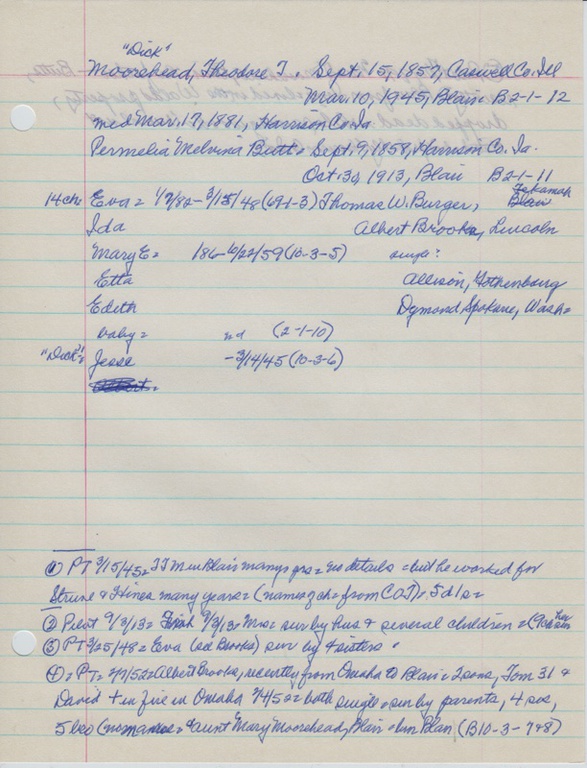 "Dick"
Moorehead, Theodore T. Sept. 15, 1857, Caswell Co. Ill
Mar. 10, 1945, Blair B-2-1-12
med Mar. 17, 1881, Harrison Co. Ia
Permelia Melvina Butt = Sept. 9, 1858, Harrison Co. Ia.
Oct. 30, 1913, Blair B-2-1-11
14 ch: Eva = 1/7/82 - 3/15/48 (69-1-3) Thomas W. Burger, Tekamah Blair
Ida Albert Brooks, Lincoln
Mary E = 186 - 6/22/59 (10-3-5) single?
Etta Allison, Gothenburg
Edith Dymond Spokane, Wash =
baby = nd (2-1-10)
"Dick" = Jesse - 3/14/45 (10-3-6)
① PT 3/15/45 = TTM in Blair many yrs = no details = but he worked for
& Hines many years = (names of ch = from COT), 5 d / s =
② Pilot 9/3/13 = 9/3/13 = Mrs = sur by hus & several children =
③ PT 3/25/48 = Eva (ed Brooks) sur by 4 sisters.
④ = PT = 7/52 = Albert Brooks, recently from Omaha to Blair = 2 sons, Tom 31 &
David + in fire in Omaha 7/4/52 = both single = sur by parents, 4 sis,
5 bro (no names = aunt Mary Moorehead, Blair = bur Blair (B10-3-7&8)